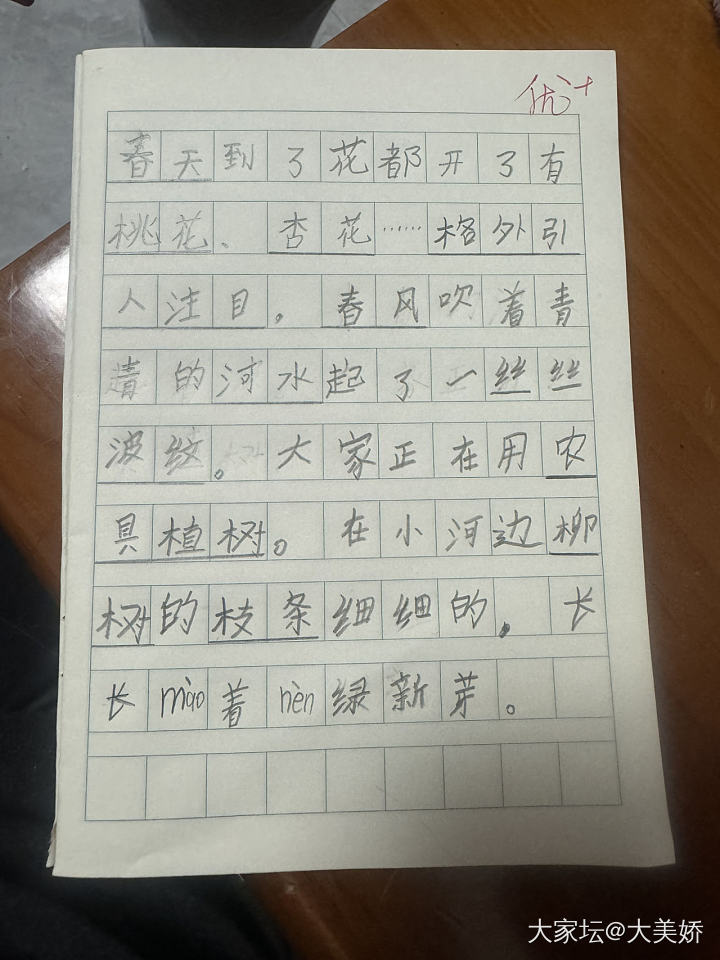 优+
春天到了花都开了有
桃花、杏花……格外引
人注目。春风吹着青
清的河水起了一丝丝
波纹。大家正在用农
具植树。在小河边柳
树的枝条细细的,长
长mào着nèn绿新芽。
大家坛@大美娇